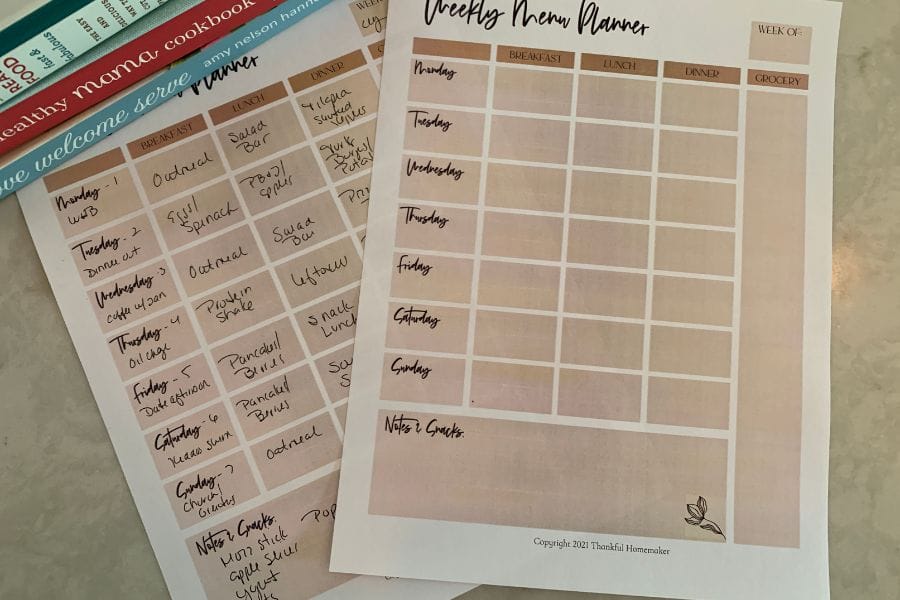 THE EASY
WAY TO
DELICIOUS
fast &
fabulous
REA
FOOD
healthy mama cookbook
love welcome serve amy nelson hanno
Planner
WEEK
BREAKFAST
LUNCH
DINNER
Monday - 1
WOB
Oatmeal
Salad
Bar
Tilapia
Peppers
Tuesday - 2
Dinner out
Eggs/
Spinach
PB&J/
apples
Wednesday - 3
Coffee w/Jan
Oatmeal
Salad
Bar
Thursday - 4
Oil change
Protein
Shake
Leftover
Friday - 5
Date afternoon
Pancakes/
Berries
Snack
Lunch
Saturday - 6
Pancakes/
Berries
Sunday - 7
Church/
Oatmeal
Notes & Snacks:
Pop
Mozz Stick
apple slices
Yogurt
Weekly Menu Planner
WEEK OF:
BREAKFAST
LUNCH
DINNER
GROCERY
Monday
Tuesday
Wednesday
Thursday
Friday
Saturday
Sunday
Notes & Snacks:
Copyright 2021 Thankful Homemaker